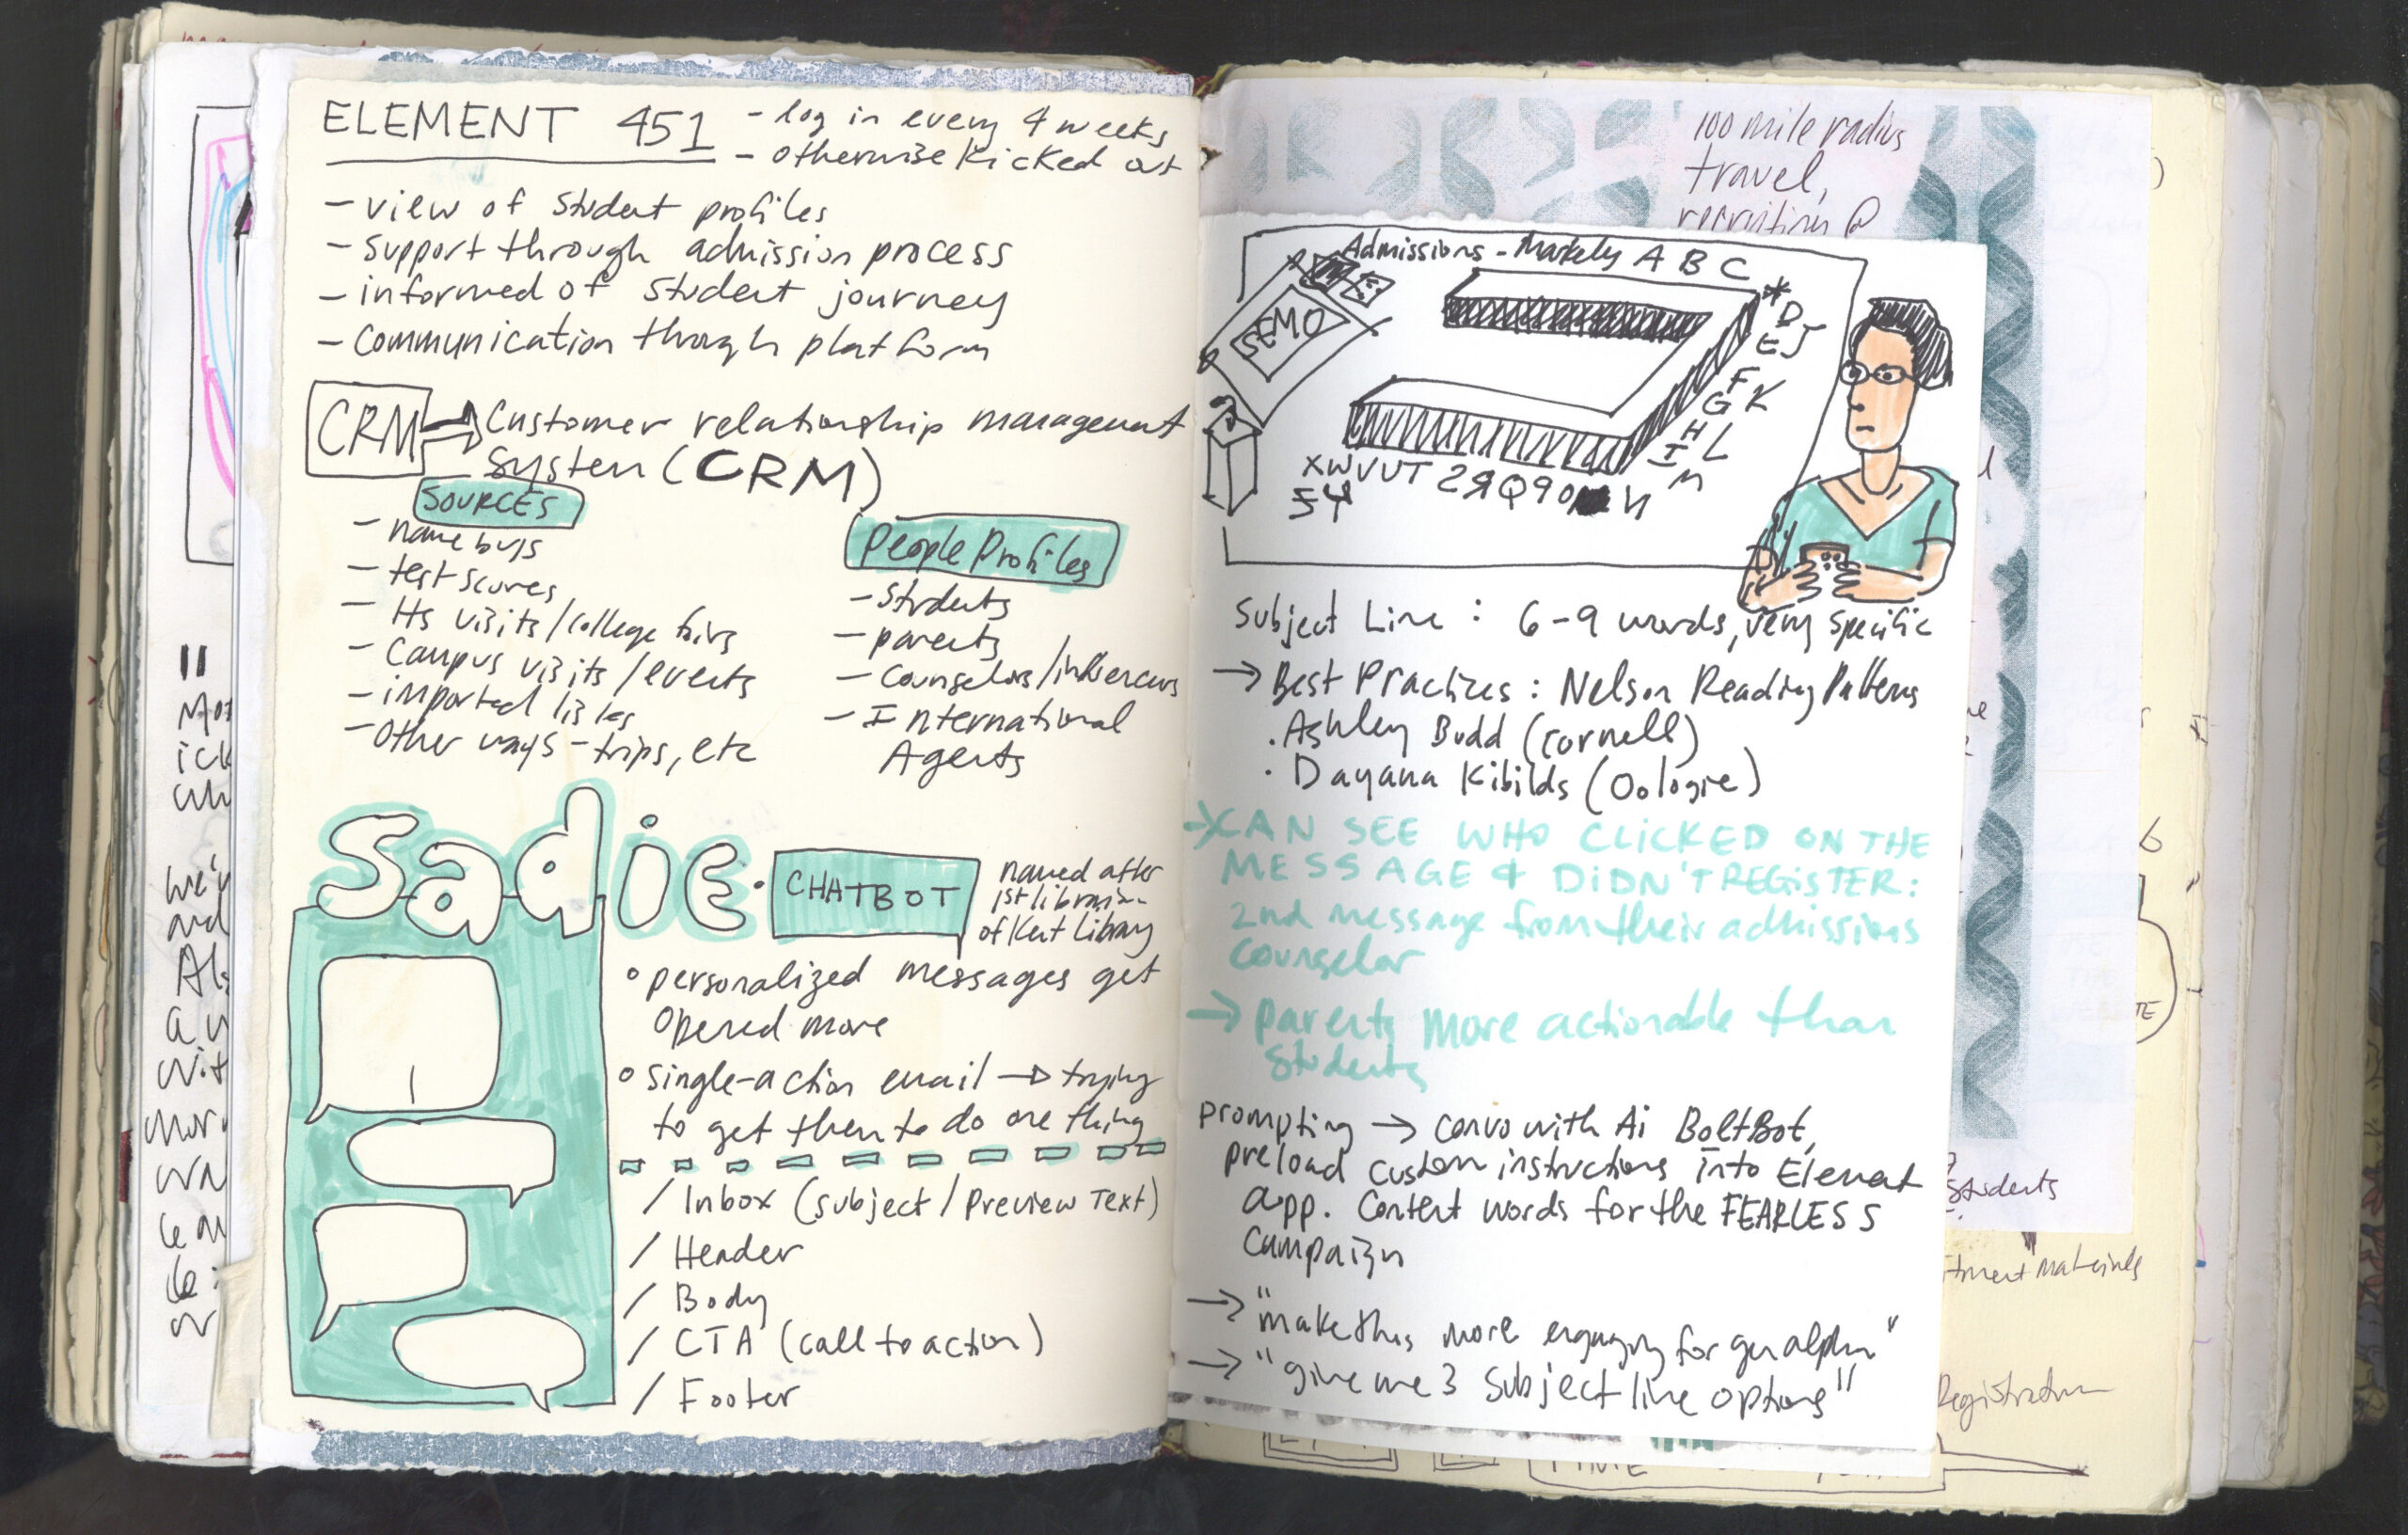 ELEMENT 451
- log in every 4 weeks
- otherwise kicked out
- view of student profiles
- support through admission process
- informed of student journey
- communication through platform
CRM
Customer relationship management
System (CRM)
SOURCES
- name buys
- test scores
- HS visits/college fairs
- Campus visits/events
- imported lists
- other ways - trips, etc
People Profiles
- Students
- parents
- Counselors/influencers
- International
Agents
Sadie
CHATBOT
named after
1st librarian
of Kent Library
personalized messages get
opened more
single-action email → trying
to get them to do one thing
/ Inbox (subject / Preview Text)
/ Header
/ Body
/ CTA (call to action)
/ Footer
100 mile radius
travel,
recruiting @
Admissions - A B C
SEMO
* D
E J
F K
G
H L
I M
X W V U T S R Q P O N
Subject Line : 6-9 words, very specific
→ Best Practices : Nelson Reading Patterns
. Ashley Budd (Cornell)
. Dayana Kibilds (Ologie)
→ CAN SEE WHO CLICKED ON THE
MESSAGE & DIDN'T REGISTER:
2nd message from their admissions
counselor
→ parents more actionable than
Students
prompting → convo with Ai BoltBot,
preload custom instructions into Element
app. Content words for the FEARLESS
campaign
→ "make this more engaging for gen alpha"
→ "give me 3 subject line options"
students
materials
Registration